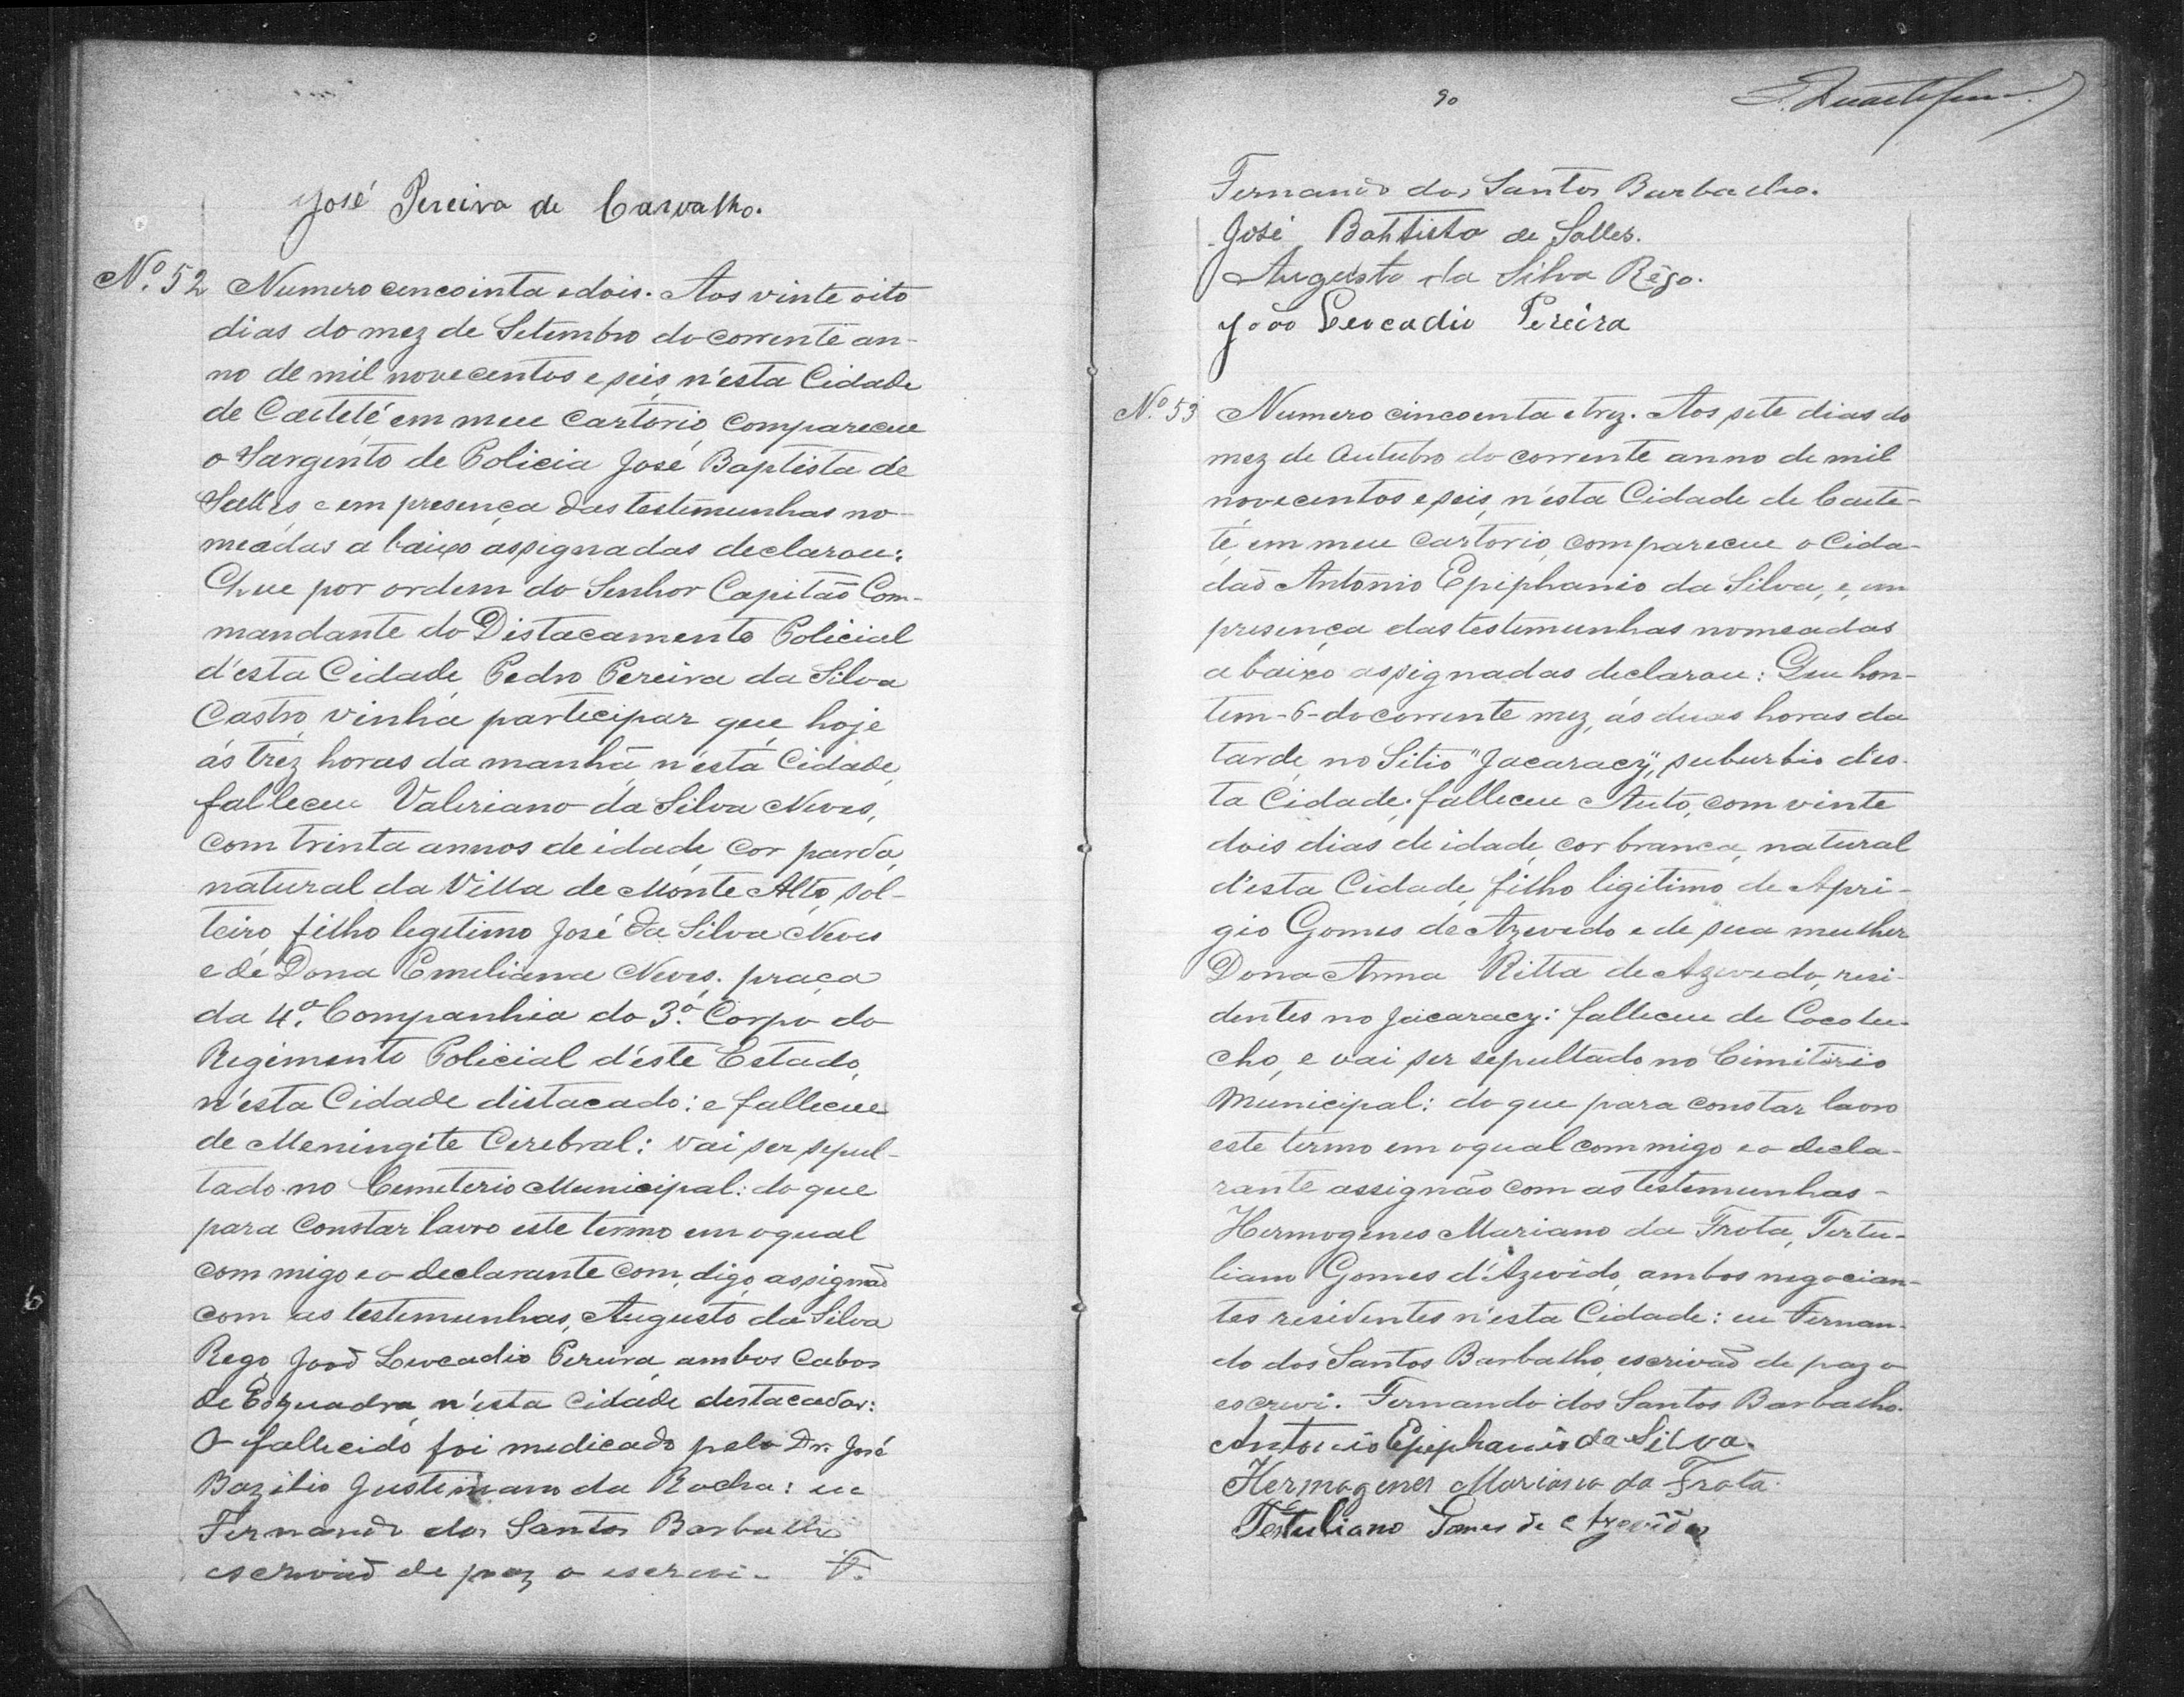 José Pereira de Carvalho.
Nº. 52 Numero cencointa edois. Aos vinte oito
dias do mez de Setembro do corrente an-
no de mil novecentos e seis, n'esta Cidade
de Caeteté em meu Cartorio, compareceu
o Sargento de Policia José Baptista de
Salles e em presença das testemunhas no-
meadas a baixo assignadas declarou:
Que por ordem do Senhor Capitão Com-
mandante do Distacamento Policial
d'esta Cidade, Pedro Pereira da Silva
Castro, vinha participar que, hoje
ás trez horas da manhã, n'esta Cidade,
falleceu Valeriano da Silva Neves,
com trinta annos de idade, cor parda,
natural da Villa de Monte Alto, sol-
teiro, filho legitimo José da Silva Neves
e de Dona Emiliana Neves, praça
da 4ª. Companhia do 3º. Corpo do
Regimento Policial d'éste Estado,
n'esta Cidade distacado: e falleceu
de Meningite Cerebral: vai ser sepul-
tado no Cemeterio Municipal: do que
para constar lavro este termo em oqual
com migo e o declarante com, digo, assignão
com as testemunhas, Augusto da Silva
Rego, João Leocadio Pereira, ambos Cabos
de Esquadra, n'esta Cidade destacados:
O fallecido foi medicado pelo Dr. José
Bazilio Justiniano da Rocha: eu
Fernando dos Santos Barbalho
escrivão de paz o escrevi. F.
90
Fernando dos Santos Barbalho.
José Bahtista de Salles.
Augusto da Silva Rêgo.
João Leocadio Pereira
Nº. 53 Numero cincoenta etrez. Aos sete dias do
mez de Outubro do corrente anno de mil
novecentos e seis, n'esta Cidade de Caete-
té, em meu cartorio, compareceu o Cida-
dão Antonio Epiphanio da Silva, e, em
presença das testemunhas nomeadas
a baixo assignadas declarou: Que hon-
tem - 6 - do corrente mez, ás duas horas da
tarde, no Sitio "Jacaracy", suburbio d'es-
ta Cidade, falleceu Auto, com vinte
dois dias de idade, cor branca, natural
d'esta Cidade, filho ligitimo de Apri-
gio Gomes de Azevedo e de sua mulher
Dona Anna Ritta de Azevedo, resi-
dentes no Jacaracy: falleceu de Cocolu-
cho, e vai ser sepultado no Cimiterio
Municipal: do que para constar lavro
este termo em oqual com migo e o decla-
rante assignão com as testemunhas -
Hermogenes Mariano da Frota, Tertu-
liano Gomes d'Azevido, ambos negocian-
tes residentes n'esta Cidade: eu Fernan-
do dos Santos Barbalho, escrivão de paz o
escrevi. Fernando dos Santos Barbalho.
Antonio Epiphanio da Silva.
Hermogenes Mariano da Frota.
Tertuliano Gomes de Azevêdo